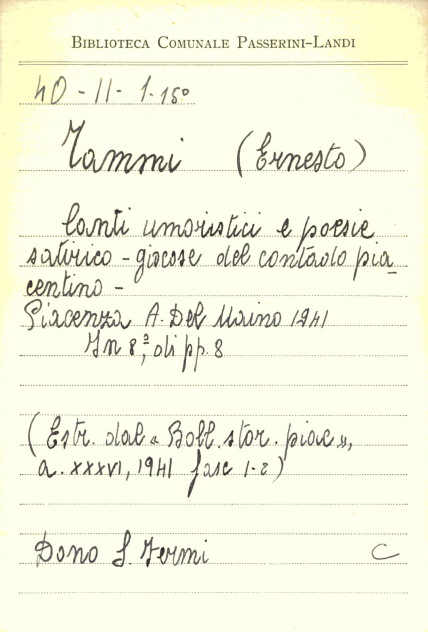 BIBLIOTECA COMUNALE PASSERINI-LANDI
40-11-1-15º
Tammi (Ernesto)
Canti umoristici e poesie
satirico-giocose del contado pia
centino-
Piacenza A. Del Maino 1941
In 8º, di pp. 8
(Estr. dal "Boll. stor. piac",
a. XXXVI, 1941 fasc 1-2)
Dono S. Fermi C